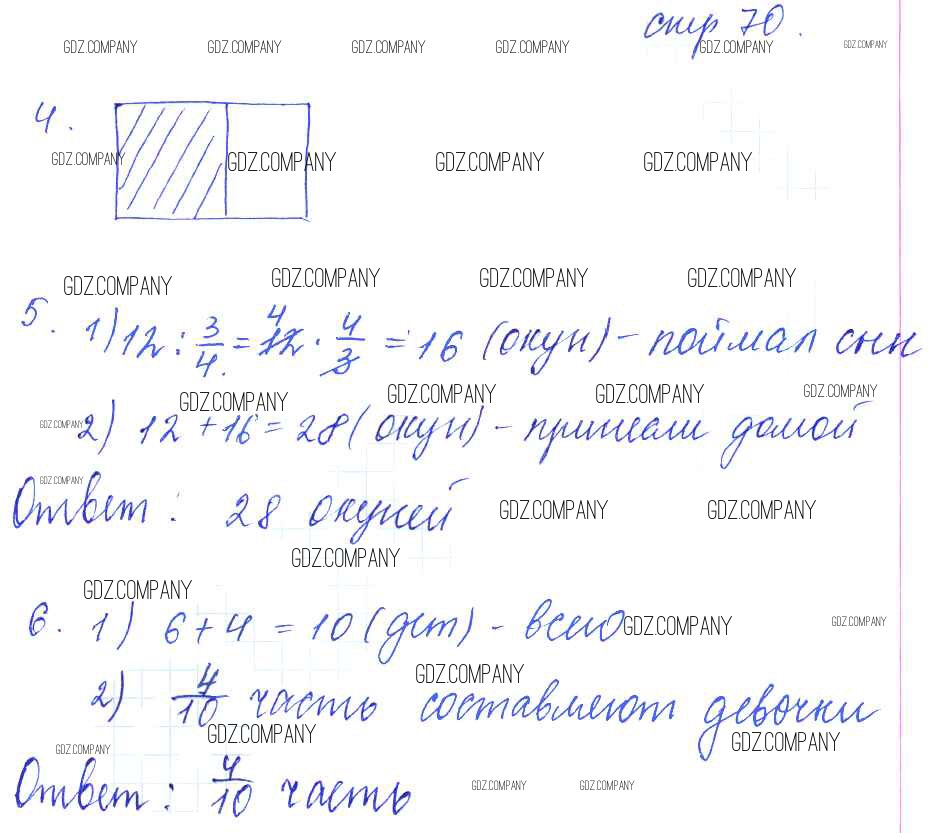 стр 70.
GDZ.COMPANY GDZ.COMPANY GDZ.COMPANY GDZ.COMPANY GDZ.COMPANY GDZ.COMPANY
4.
GDZ.COMPANY GDZ.COMPANY GDZ.COMPANY GDZ.COMPANY
GDZ.COMPANY GDZ.COMPANY GDZ.COMPANY GDZ.COMPANY
5. 1) 12 : 3/4 = 12 4 · 4/3 = 16 (окун) - поймал сын
GDZ.COMPANY GDZ.COMPANY GDZ.COMPANY GDZ.COMPANY
GDZ.COMPANY 2) 12 + 16 = 28 (окун) - принесли домой
GDZ.COMPANY
Ответ : 28 окуней GDZ.COMPANY GDZ.COMPANY
GDZ.COMPANY
GDZ.COMPANY
6. 1) 6 + 4 = 10 (дет) - всего GDZ.COMPANY GDZ.COMPANY
GDZ.COMPANY
2) 4/10 часть составляют девочки
GDZ.COMPANY GDZ.COMPANY GDZ.COMPANY
Ответ : 4/10 часть GDZ.COMPANY GDZ.COMPANY